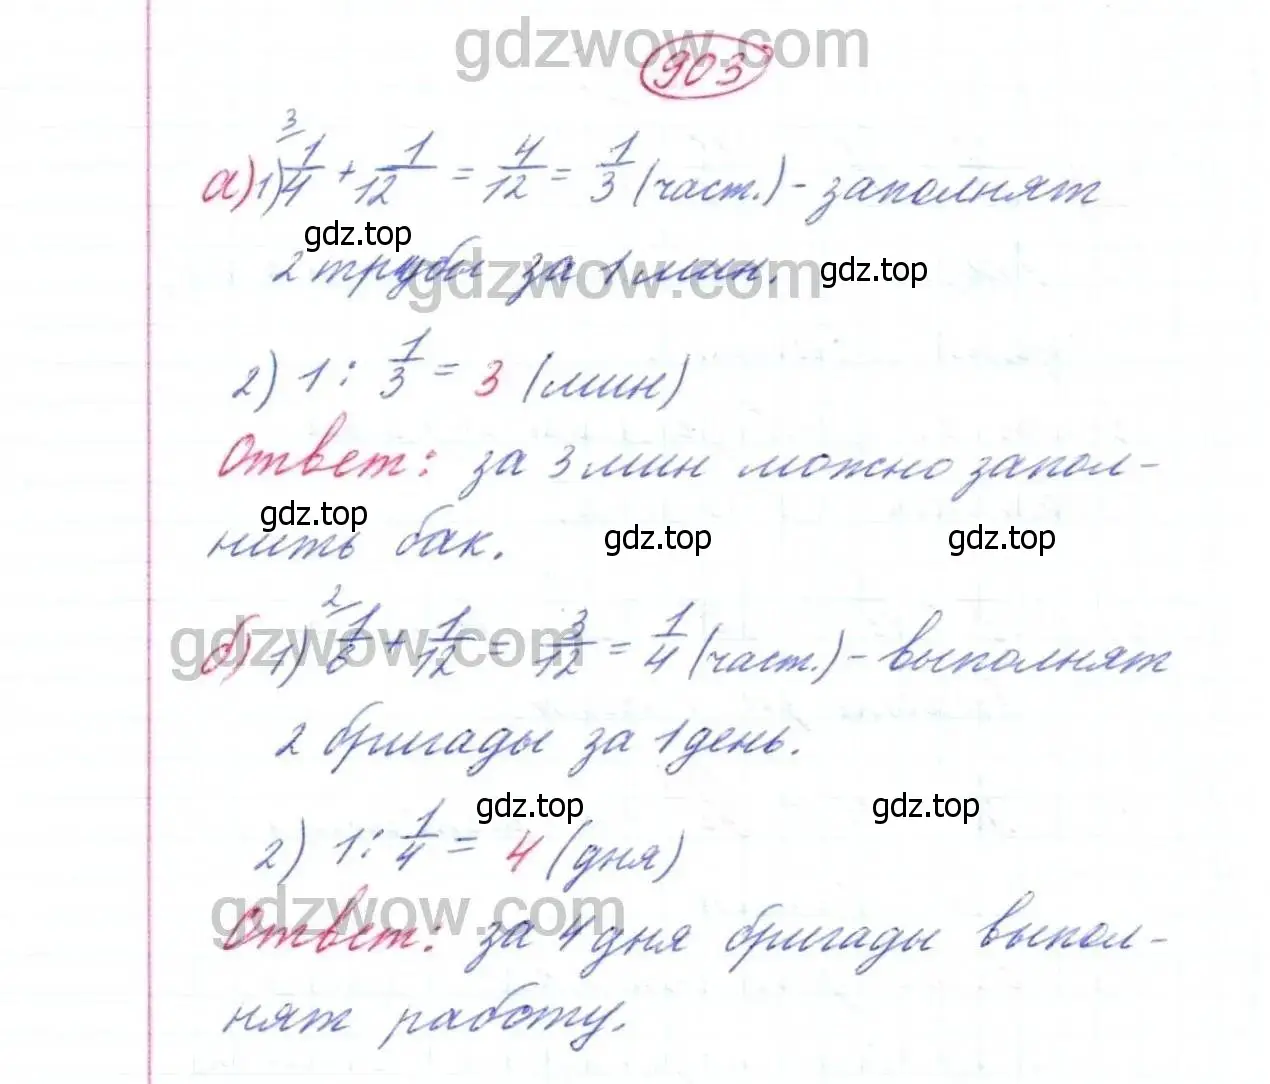 gdzwow.com
903
а) 1) ³⁄ 1/4 + 1/12 = 4/12 = 1/3 (част.) - заполнят
gdz.top
2 трубы за 1 мин.
gdzwow.com
gdz.top
2) 1 : 1/3 = 3 (мин)
Ответ: за 3 мин можно запол-
gdz.top
нить бак.
gdz.top
gdz.top
gdzwow.com
б) 1) ²⁄ 1/6 + 1/12 = 3/12 = 1/4 (част.) - выполнят
2 бригады за 1 день.
gdz.top
gdz.top
2) 1 : 1/4 = 4 (дня)
gdzwow.com
Ответ: за 4 дня бригады выпол-
нят работу.